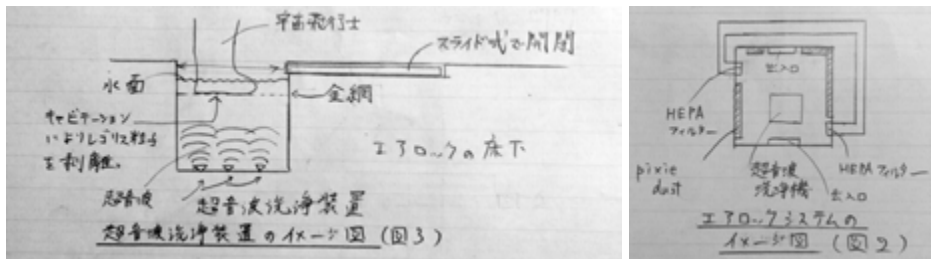 宇宙飛行士
スライド式で開閉
水面
金網
キャビテーション
によりレゴリス粒子
を剥離。
エアロックの床下
超音波
超音波洗浄装置
超音波洗浄装置のイメージ図 (図3)
出入口
HEPA
フィルター
pixie
dust
超音波
洗浄機
HEPAフィルター
出入口
エアロックシステムの
イメージ図 (図2)